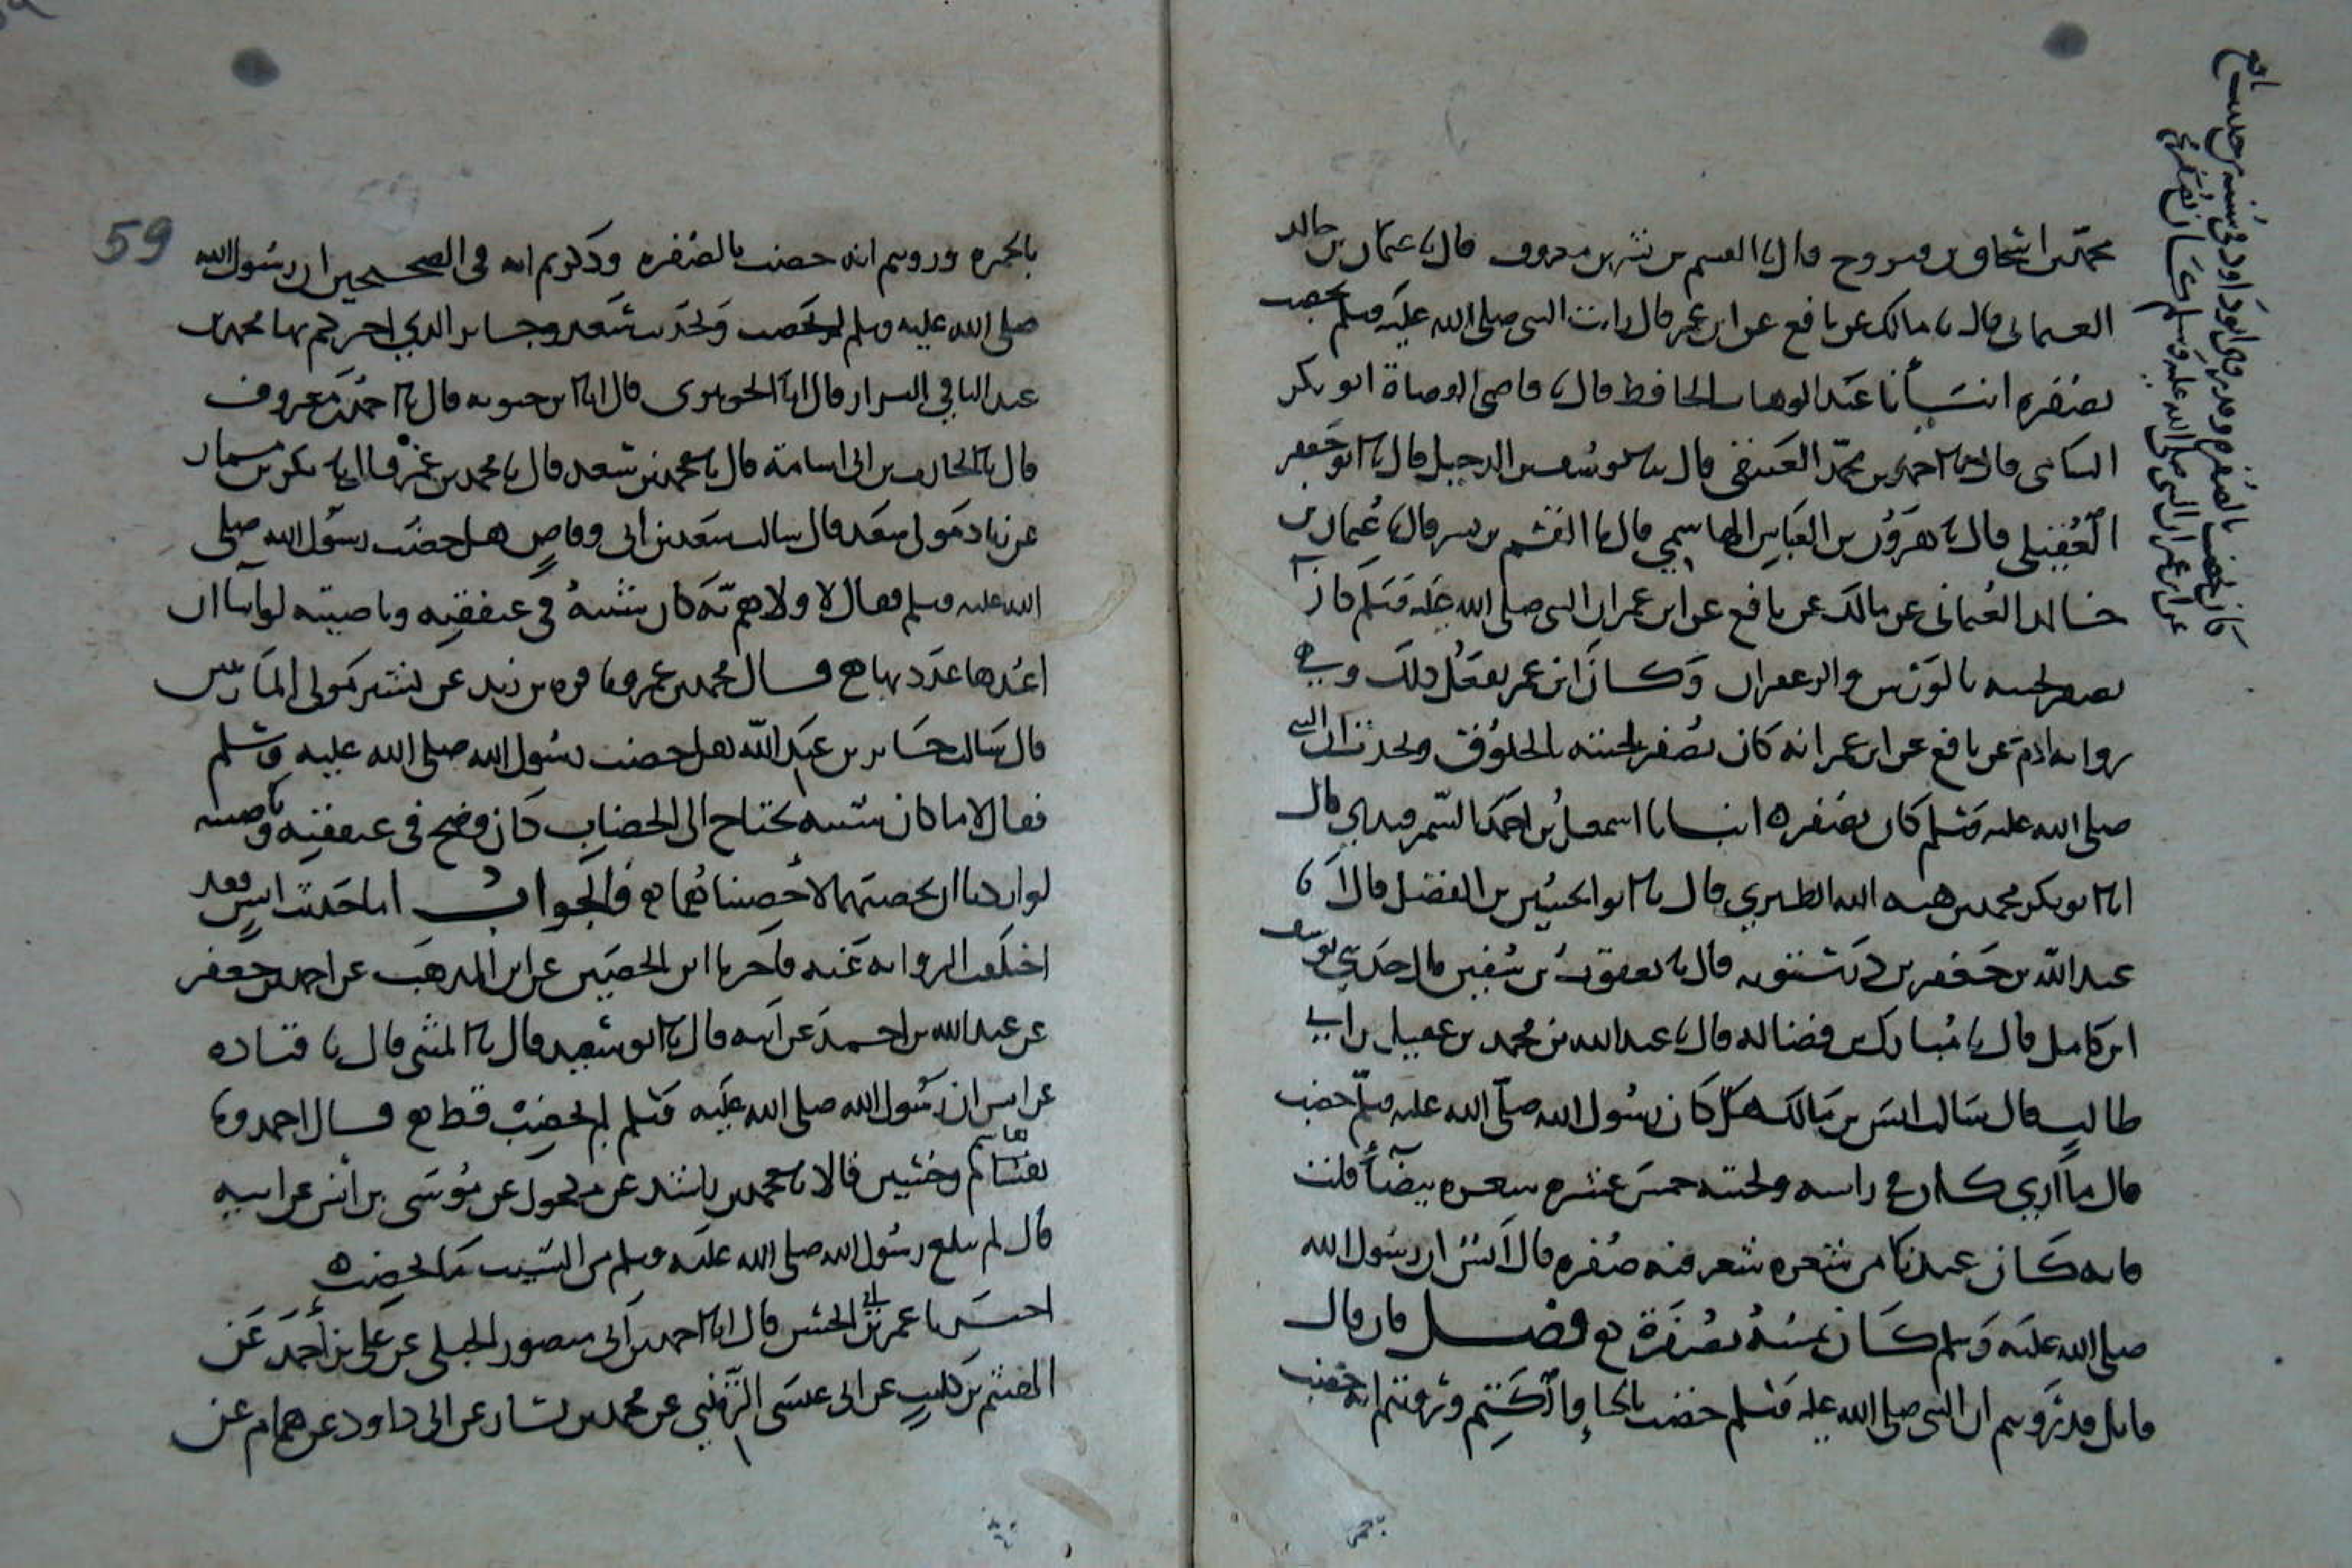 محمد بن اسحاق بن فروح قال نا القسم بن بشر بن معروف قال نا عثمان بن خالد
العثماني قال نا مالك عن نافع عن ابن عمر قال رايت النبي صلى الله عليه وسلم يخضب
بصفره انبانا عبد الوهاب الحافظ قال نا قاضي القضاة ابو بكر
الشامي قال نا احمد بن محمد العتيقي قال نا يوسف بن الدخيل قال نا ابو جعفر
العقيلي قال نا هرون بن العباس الهاشمي قال نا القسم بن بشر قال نا عثمان بن
خالد العثماني عن مالك عن نافع عن ابن عمر ان النبي صلى الله عليه وسلم كان
يصفر لحيته بالورس والزعفران وكان ابن عمر يفعل ذلك وفي
رواية ادم عن نافع عن ابن عمر انه كان يصفر لحيته بالخلوق ويحدث ان النبي
صلى الله عليه وسلم كان يصفره انبانا اسمعيل بن احمد السمرقندي قال
انا ابو بكر محمد بن هبه الله الطبري قال نا ابو الحسين بن الفضل قال انا
عبد الله بن جعفر بن درستويه قال نا يعقوب بن سفين قال حدثني يوسف
ابن كامل قال نا مبارك بن فضاله قال نا عبد الله بن محمد بن عقيل بن ابي
طالب قال سالت انس بن مالك هل كان رسول الله صلى الله عليه وسلم خضب
قال ما اري كان في راسه ولحيته خمس عشره شعره بيضا قلت
فانه كان عندنا من شعره شعر فيه صفره قال انس ان رسول الله
صلى الله عليه وسلم كان يمسه بصفرة فصل فان قال
قايل قد رويتم ان النبي صلى الله عليه وسلم خضب بالحنا والكتم ورويتم انه خضب
كان يخضب بالصفره وقد روى ابو داود في سننه من حديث نافع
عن ابن عمر ان النبي صلى الله عليه وسلم كان يصفر لحيته
59
بالحمره ورويتم انه خضب بالصفره وذكرتم انه في الصحيحين ان رسول الله
صلى الله عليه وسلم لم يخضب وحديث سعد وجابر الذي اخبركم بهما محمد بن
عبد الباقي البزار قال انا الجوهري قال انا ابن حيويه قال نا احمد بن معروف
قال نا الحارث بن ابي اسامة قال نا محمد بن سعد قال نا محمد بن عمر قال نا بكير بن مسمار
عن زياد مولى سعد قال سالت سعد بن ابي وقاص هل خضب رسول الله صلى
الله عليه وسلم فقال لا ولا هم به كان شيبه في عنفقته وناصيته لو اشا ان
اعدها عددتها قال محمد بن عمر ونا فروه بن زبيد عن بشير مولى المازنيين
قال سالت جابر بن عبد الله هل خضب رسول الله صلى الله عليه وسلم
فقال لا ما كان شيبه يحتاج الى الخضاب كان وضح في عنفقته وناصيته
لو اردنا ان نحصيهما لاحصيناهما فالجواب اما حديث انس فقد
اختلفت الروايه عنه فاخبرنا ابن الحصين عن ابن المذهب عن احمد بن جعفر
عن عبد الله بن احمد عن ابيه قال نا ابو سعيد قال نا المثنى قال نا قتاده
عن انس ان رسول الله صلى الله عليه وسلم لم يخضب قط قال احمد ونا
هاشم وحسين قالا نا محمد بن راشد عن مكحول عن موسى بن انس عن ابيه
قال لم يبلغ رسول الله صلى الله عليه وسلم من الشيب ما يخضبه
اخبرنا عمر بن ابي الحسن قال انا احمد بن ابي منصور الخليلي عن علي بن احمد عن
الهيثم بن كليب عن ابي عيسى الترمذي عن محمد بن بشار عن ابي داود عن همام عن